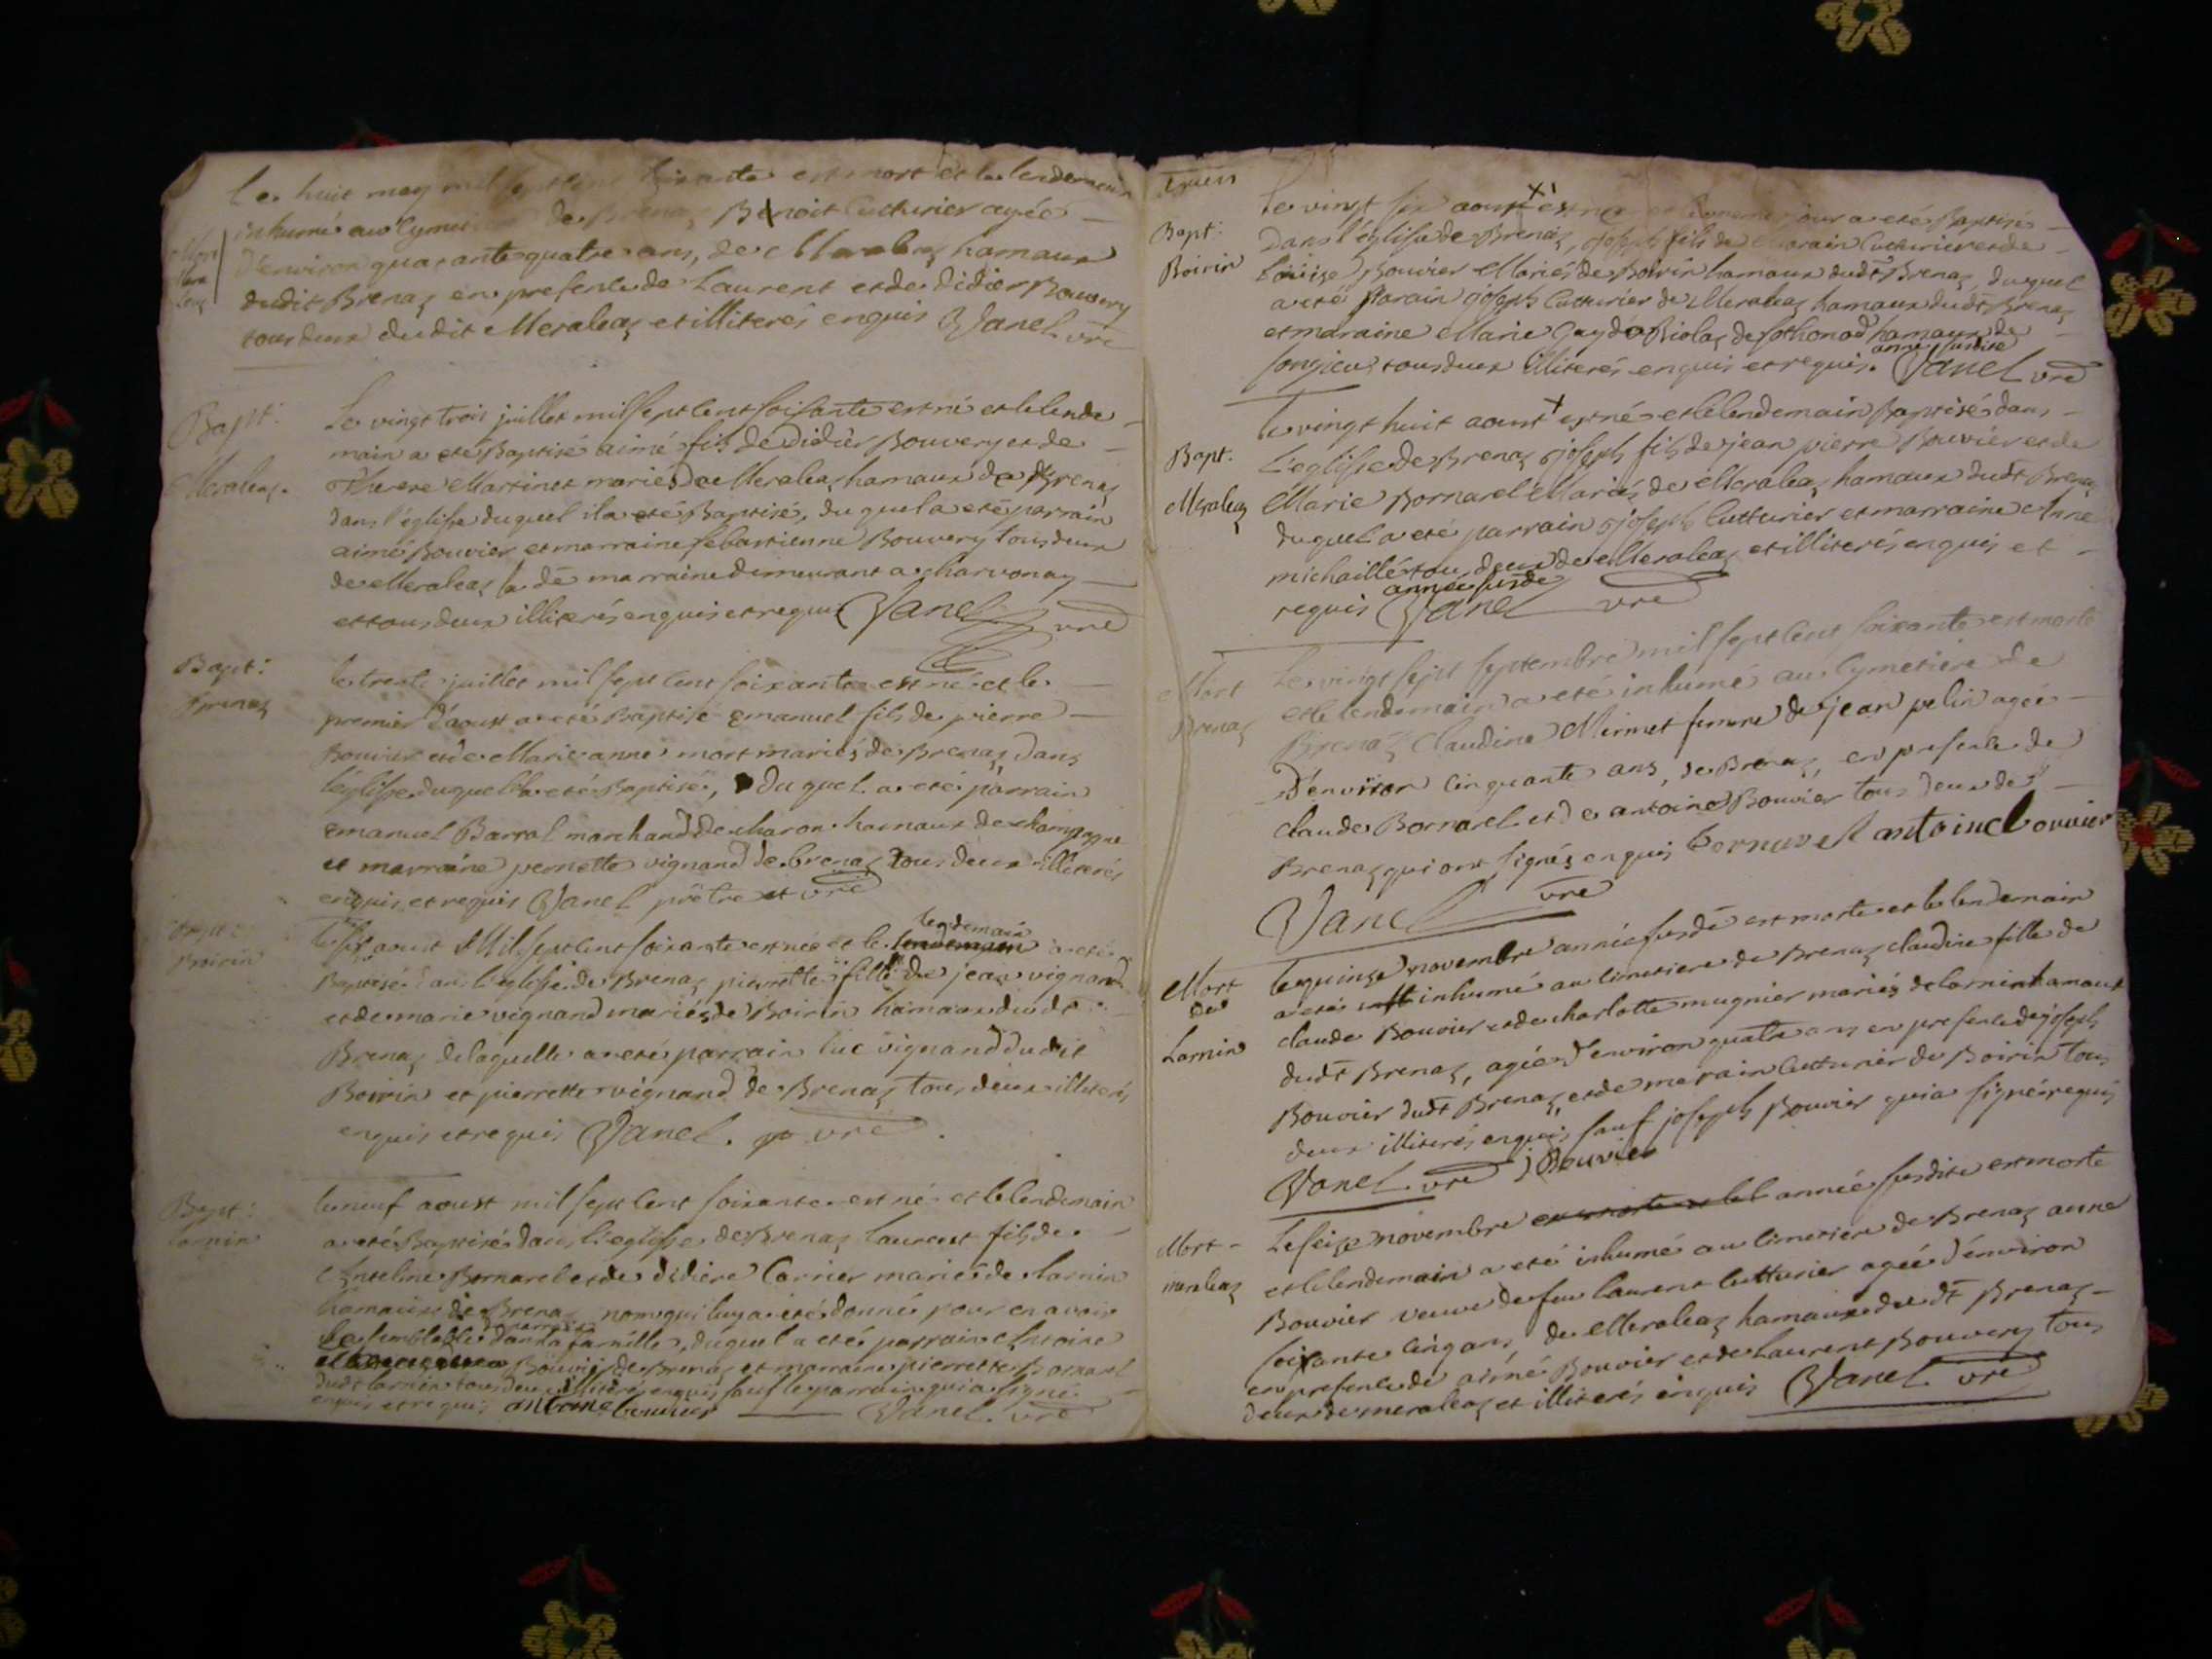 Le huit may mil sept cent soixante est mort et le lendemain
inhumé au cymetiere de Brenaz Benoit Cutturier agée
d'environ quarante quatre ans, de Meraleaz hamaux
dudit Brenaz en presence de Laurent et de Didier Bouvery
tous deux dudit Meraleaz et illiterés enquis Vanel vre
Bapt:
Meraleaz.
Le vingt trois juillet mil sept cent soisante est né et le lende
main a eté Baptisé aimé fils de Didier Bouvery et de
Therese Martinet mariés de Meraleaz hamaux de Brenaz
dans l'eglise duquel il a eté Baptisé, du quel a eté parrain
aimé Bouvier et marraine sebastienne Bouvery tous deux
de Meraleaz la de marraine demeurant a charvonay
et tous deux illiterés enquis et requis Vanel vre
Bapt:
Brenaz
le trente juillet mil sept cent soixante est né et le
premier d'aoust a eté Baptisé emanuel fils de pierre
Bouvier et de Marie anne mort mariés de Brenaz, dans
l'eglise duquel il a eté Baptisé, du quel a eté parrain
emanuel Barral marchand de charon hamaux de champagne
et marraine pernette vignand de brenaz tous deux illiterés
enquis et requis Vanel prêtre et vre
Bapt:
Boirin
le six aoust Mil sept cent soixante est née et le lendemain a eté
lendemain
Baptisé dans l'eglise de Brenaz pierrette fille de jean vignand
et de marie vignand mariés de Boirin hamaux dudt
Brenaz de laquelle a eté parrain luc vignand dudit
Boirin et pierrette vignand de Brenaz tous deux illiterés
enquis et requis Vanel. vre
Bapt:
Larnin
le neuf aoust mil sept cent soixante est né et le lendemain
a eté Baptisé dans l'eglise de Brenaz laurent fils de
Anselme Bornarel et de didiere Carrier mariés de Larnin
hamaux de Brenaz nom qui luy a eté donné pour en avoir
de semblable dans la famille, duquel a eté parrain Antoine
Bouvier de Brenaz et marraine pierrette Bornarel
dudt Larnin tous deux illiterés enquis sauf le parrain qui a signé
enquis et requis antoine bouvier Vanel. vre
Le vingt six aoust est né et le meme jour a eté Baptisé
Bapt:
Boirin
Dans l'eglise de Brenaz, joseph fils de Marain Cutturier et de
Loüise Bouvier Mariés de Boirin hamaux dudt Brenaz, duquel
a eté parain joseph Cutturier de Meraleaz hamaux dudt Brenaz
et maraine Marie Gay de Biolaz de sothonod hamaux de
songieu tous deux illiterés enquis et requis. anné susdite Vanel vre
Le vingt huit aoust est né et le lendemain Baptisé dans
Bapt:
Meraleaz
l'eglise de Brenaz joseph fils de jean pierre Bouvier et de
Marie Bornarel Mariés de Meraleaz hamaux dudt Brenaz
duquel a eté parrain joseph Cutturier et marraine Anne
michaille tous deux de Meraleaz et illiterés enquis et
requis année susde Vanel vre
Mort
Brenaz
Le vingt sept septembre mil sept cent soixante est morte
et le lendemain a eté inhumé au cymetiere de
Brenaz Claudine Mermet femme de jean pelin agée
D'environ cinquante ans, de Brenaz, en presence de
claude Bornarel et de antoine Bouvier tous deux de
Brenaz qui ont signés enquis bornarel antoine bouvier
Vanel vre
Mort
de
Larnin
Le quinze novembre année susde est morte et le lendemain
a eté inhumé au cimetiere de Brenaz claudine fille de
claude Bouvier et de charlotte mugnier mariés de larnin hamaux
dudt Brenaz, agée d'environ quatre ans en presence de joseph
Bouvier dudt Brenaz, et de marain Cutturier de Boirin tous
deux illiterés enquis sauf joseph Bouvier qui a signé requis
Vanel vre j Bouvier
Mort
meraleaz
Le seize novembre année susdite est morte
et le lendemain a eté inhumé au cimetiere de Brenaz anne
Bouvier veuve de feu laurent Cutturier agée d'environ
soixante cinq ans, de Meraleaz hamaux dudt Brenaz
en presence de aimé Bouvier et de Laurent Bouvery tous
deux de meraleaz et illiterés enquis Vanel vre